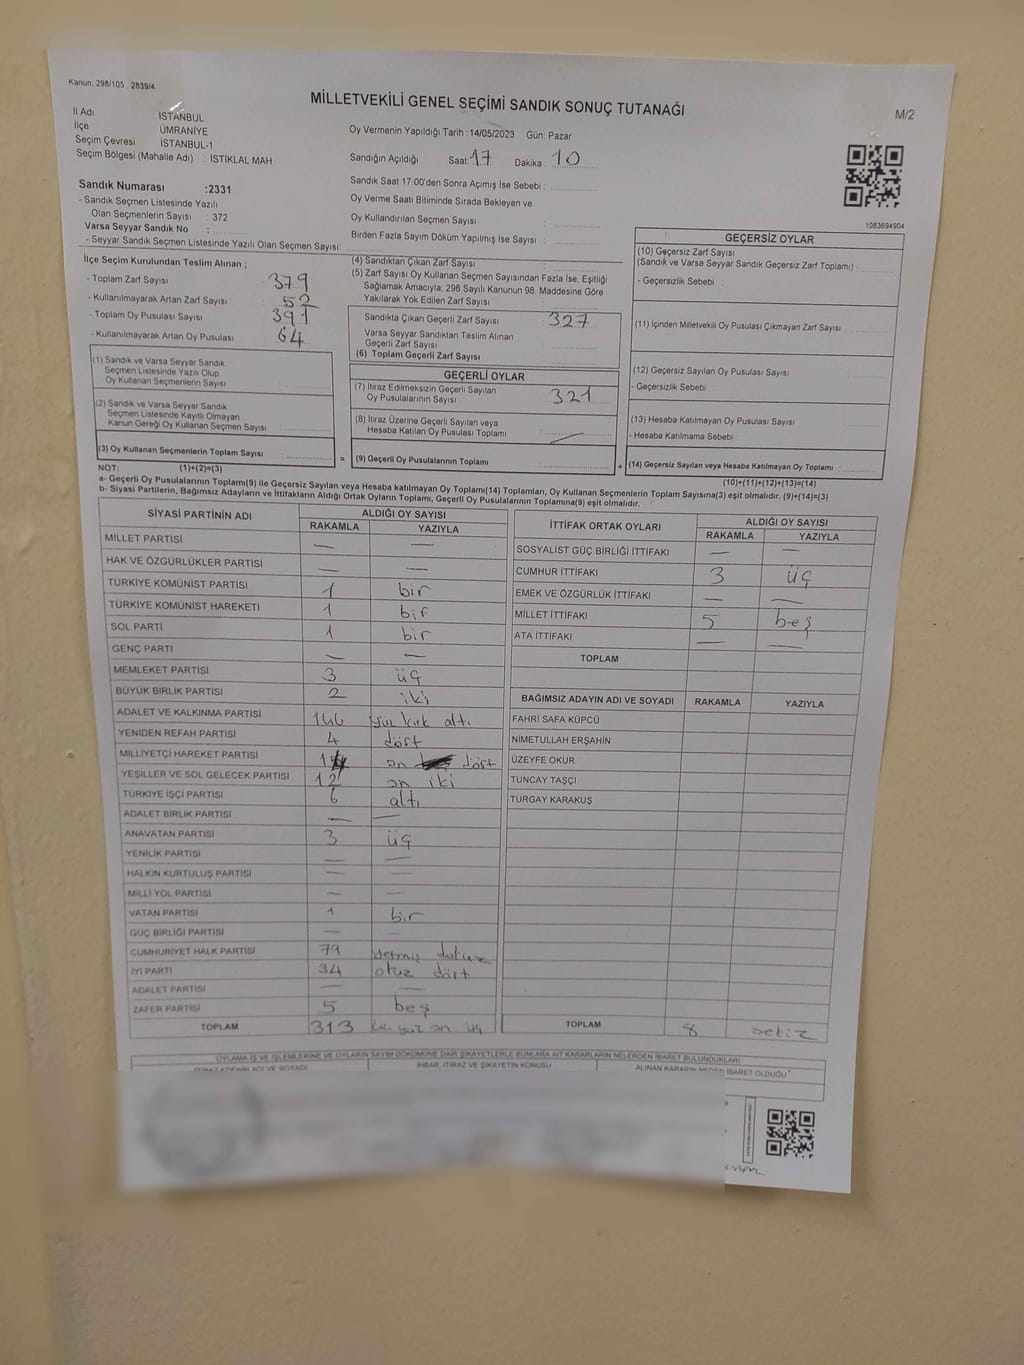 Kanun: 298/105 ; 2839/4
MİLLETVEKİLİ GENEL SEÇİMİ SANDIK SONUÇ TUTANAĞI
M/2
İl Adı : İSTANBUL
İlçe : ÜMRANİYE
Seçim Çevresi : İSTANBUL-1
Seçim Bölgesi (Mahalle Adı) : İSTİKLAL MAH
Oy Vermenin Yapıldığı Tarih :14/05/2023 Gün: Pazar
Sandığın Açıldığı Saat: 17 Dakika: 10
Sandık Saat 17:00'den Sonra Açımış İse Sebebi :
Oy Verme Saati Bitiminde Sırada Bekleyen ve
Oy Kullandırılan Seçmen Sayısı :
Birden Fazla Sayım Döküm Yapılmış İse Sayısı :
1083694904
Sandık Numarası :2331
- Sandık Seçmen Listesinde Yazılı
Olan Seçmenlerin Sayısı : 372
Varsa Seyyar Sandık No :
- Seyyar Sandık Seçmen Listesinde Yazılı Olan Seçmen Sayısı:
İlçe Seçim Kurulundan Teslim Alınan ;
- Toplam Zarf Sayısı : 379
- Kullanılmayarak Artan Zarf Sayısı : 52
- Toplam Oy Pusulası Sayısı : 391
- Kullanılmayarak Artan Oy Pusulası : 64
(1) Sandık ve Varsa Seyyar Sandık
Seçmen Listesinde Yazılı Olup
Oy Kullanan Seçmenlerin Sayısı :
(2) Sandık ve Varsa Seyyar Sandık
Seçmen Listesinde Kayıtlı Olmayan
Kanun Gereği Oy Kullanan Seçmen Sayısı :
(3) Oy Kullanan Seçmenlerin Toplam Sayısı :
(4) Sandıktan Çıkan Zarf Sayısı :
(5) Zarf Sayısı Oy Kullanan Seçmen Sayısından Fazla İse, Eşitliği
Sağlamak Amacıyla; 298 Sayılı Kanunun 98. Maddesine Göre
Yakılarak Yok Edilen Zarf Sayısı :
Sandıkta Çıkan Geçerli Zarf Sayısı : 327
Varsa Seyyar Sandıktan Teslim Alınan
Geçerli Zarf Sayısı :
(6) Toplam Geçerli Zarf Sayısı :
GEÇERLİ OYLAR
(7) İtiraz Edilmeksizin Geçerli Sayılan
Oy Pusulalarının Sayısı : 321
(8) İtiraz Üzerine Geçerli Sayılan veya
Hesaba Katılan Oy Pusulası Toplamı : —
= (9) Geçerli Oy Pusulalarının Toplamı :
GEÇERSİZ OYLAR
(10) Geçersiz Zarf Sayısı
(Sandık ve Varsa Seyyar Sandık Geçersiz Zarf Toplamı) :
- Geçersizlik Sebebi :
(11) İçinden Milletvekili Oy Pusulası Çıkmayan Zarf Sayısı :
(12) Geçersiz Sayılan Oy Pusulası Sayısı :
- Geçersizlik Sebebi :
(13) Hesaba Katılmayan Oy Pusulası Sayısı :
- Hesaba Katılmama Sebebi :
+ (14) Geçersiz Sayılan veya Hesaba Katılmayan Oy Toplamı :
NOT: (1)+(2)=(3)
(10)+(11)+(12)+(13)=(14)
a- Geçerli Oy Pusulalarının Toplamı(9) ile Geçersiz Sayılan veya Hesaba katılmayan Oy Toplamı(14) Toplamları, Oy Kullanan Seçmenlerin Toplam Sayısına(3) eşit olmalıdır. (9)+(14)=(3)
b- Siyasi Partilerin, Bağımsız Adayların ve İttifakların Aldığı Ortak Oyların Toplamı, Geçerli Oy Pusulalarının Toplamına(9) eşit olmalıdır.
SİYASİ PARTİNİN ADI ALDIĞI OY SAYISI
RAKAMLA YAZIYLA
MİLLET PARTİSİ — —
HAK VE ÖZGÜRLÜKLER PARTİSİ — —
TÜRKİYE KOMÜNİST PARTİSİ 1 bir
TÜRKİYE KOMÜNİST HAREKETİ 1 bir
SOL PARTİ 1 bir
GENÇ PARTİ — —
MEMLEKET PARTİSİ 3 üç
BÜYÜK BİRLİK PARTİSİ 2 iki
ADALET VE KALKINMA PARTİSİ 146 yüz kırk altı
YENİDEN REFAH PARTİSİ 4 dört
MİLLİYETÇİ HAREKET PARTİSİ 14 on dört
YEŞİLLER VE SOL GELECEK PARTİSİ 12 on iki
TÜRKİYE İŞÇİ PARTİSİ 6 altı
ADALET BİRLİK PARTİSİ — —
ANAVATAN PARTİSİ 3 üç
YENİLİK PARTİSİ — —
HALKIN KURTULUŞ PARTİSİ — —
MİLLİ YOL PARTİSİ — —
VATAN PARTİSİ 1 bir
GÜÇ BİRLİĞİ PARTİSİ — —
CUMHURİYET HALK PARTİSİ 79 yetmiş dokuz
İYİ PARTİ 34 otuz dört
ADALET PARTİSİ — —
ZAFER PARTİSİ 5 beş
TOPLAM 313 yüz on üç
İTTİFAK ORTAK OYLARI ALDIĞI OY SAYISI
RAKAMLA YAZIYLA
SOSYALİST GÜÇ BİRLİĞİ İTTİFAKI — —
CUMHUR İTTİFAKI 3 üç
EMEK VE ÖZGÜRLÜK İTTİFAKI — —
MİLLET İTTİFAKI 5 beş
ATA İTTİFAKI — —
TOPLAM
BAĞIMSIZ ADAYIN ADI VE SOYADI RAKAMLA YAZIYLA
FAHRİ SAFA KÜPCÜ
NİMETULLAH ERŞAHİN
ÜZEYFE OKUR
TUNCAY TAŞÇI
TURGAY KARAKUŞ
TOPLAM 8 sekiz
OYLAMA İŞ VE İŞLEMLERİNE VE OYLARIN SAYIM DÖKÜMÜNE DAİR ŞİKAYETLERLE BUNLARA AİT KARARLARIN NELERDEN İBARET BULUNDUKLARI
İHBAR, İTİRAZ VE ŞİKAYETİN KONUSU
ALINAN KARARIN NEDEN İBARET OLDUĞU